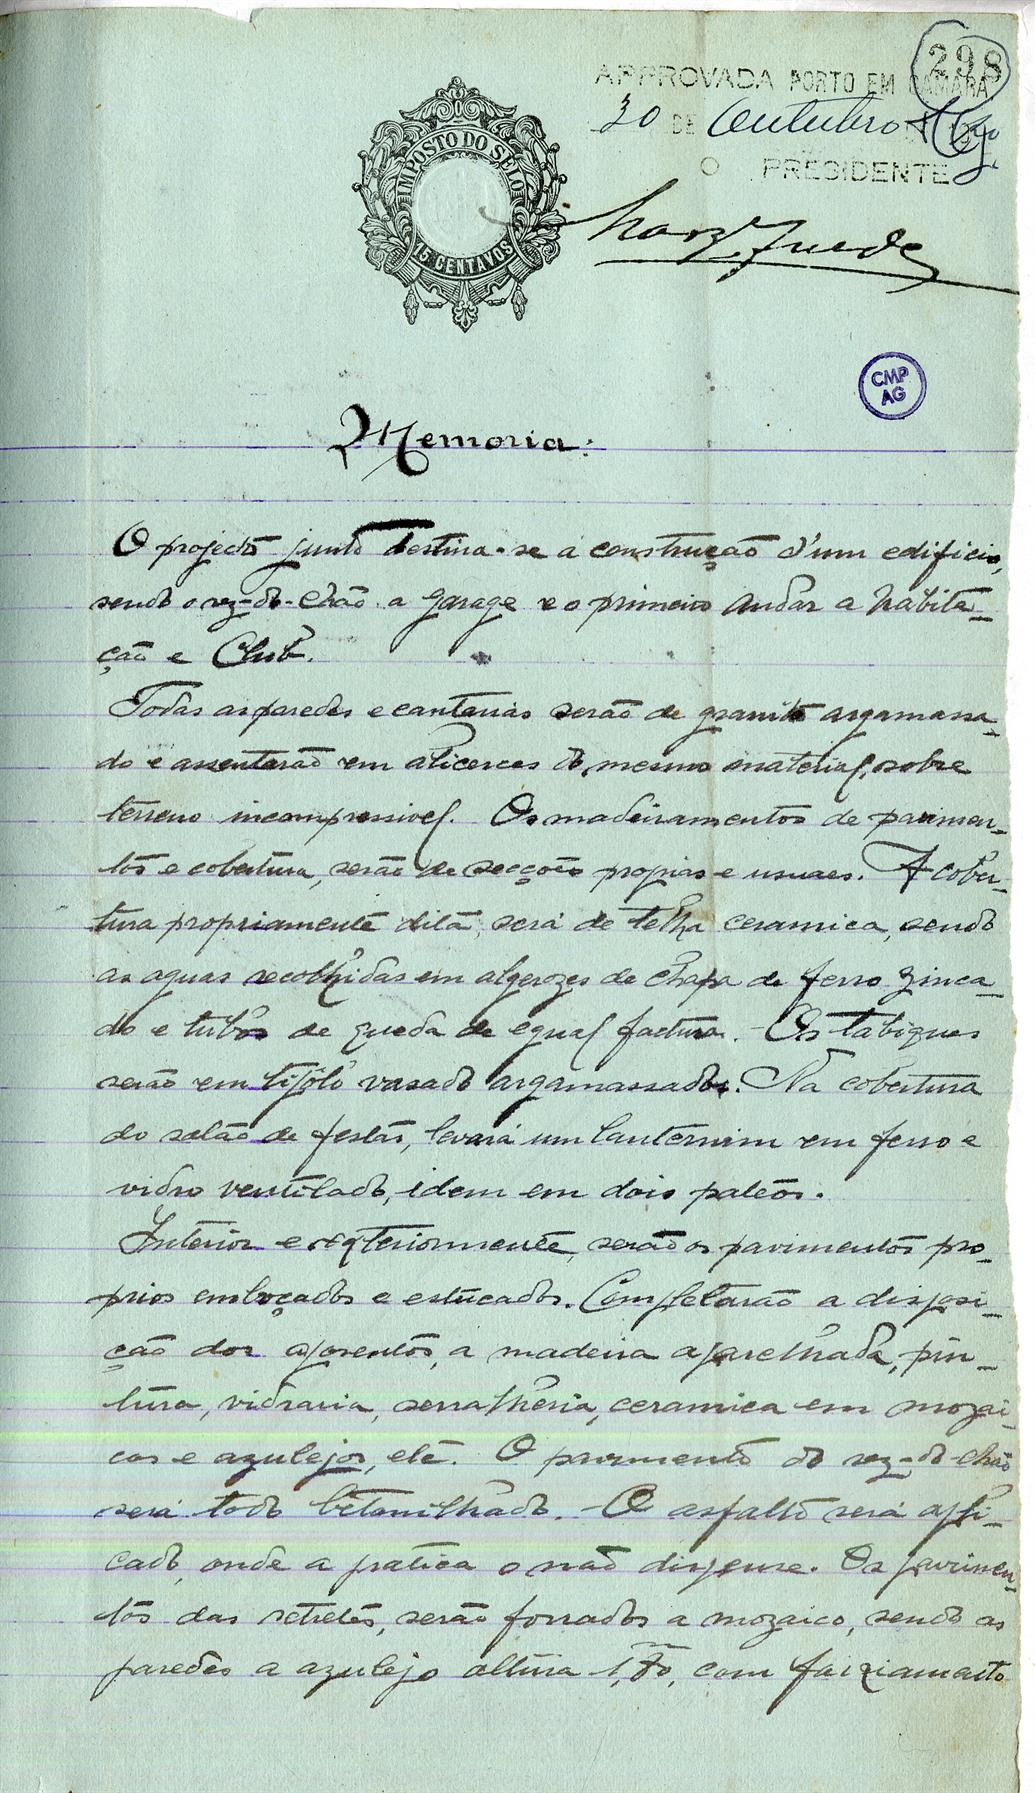 298
APPROVADA PORTO EM CAMARA
30 DE Outubro
O PRESIDENTE
IMPOSTO DO SELO
15 CENTAVOS
CMP
AG
Memoria:
O projecto junto destina-se a construção d'um edificio,
sendo o rez-do-chão a garage e o primeiro andar a habita-
ção e Club.
Todas as paredes e cantarias serão de granito argamassa-
do e assentarão em alicerces do mesmo material, sobre
terreno incompressivel. Os madeiramentos de pavimen-
tos e cobertura, serão de secções proprias e usuaes. A cober-
tura propriamente dita, será de telha ceramica, sendo
as aguas recolhidas em algerozes de chapa de ferro zinca-
do e tubos de queda de egual factura. Os tabiques
serão em tijolo vasado argamassados. Na cobertura
do salão de festas, levará um lanternim em ferro e
vidro ventilado, idem em dois pateos.
Interior e exteriormente, serão os pavimentos pro-
prios emboçados e estucados. Completarão a disposi-
ção dos aposentos, a madeira aparelhada, pin-
tura, vidraria, serralheria, ceramica em mozai-
cos e azulejos, etc. O pavimento do rez-do-chão
será todo betonilhado. O asfalto será apli-
cado, onde a pratica o não dispense. Os pavimen-
tos das retretes, serão forrados a mozaico, sendo as
paredes a azulejo altura 1,70, com faixiamento